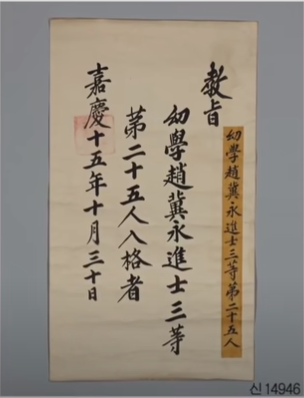 幼學趙冀永進士三等第二十五人
敎旨
幼學趙冀永進士三等
第二十五人入格者
嘉慶十五年十月三十日
신14946